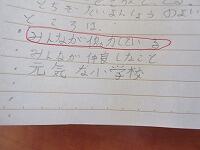 ところは、
・みんなが協力している
・みんなが仲良しなこと
・元気な小学校